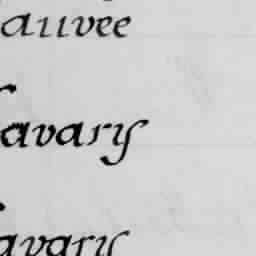 auvee
avary
avary